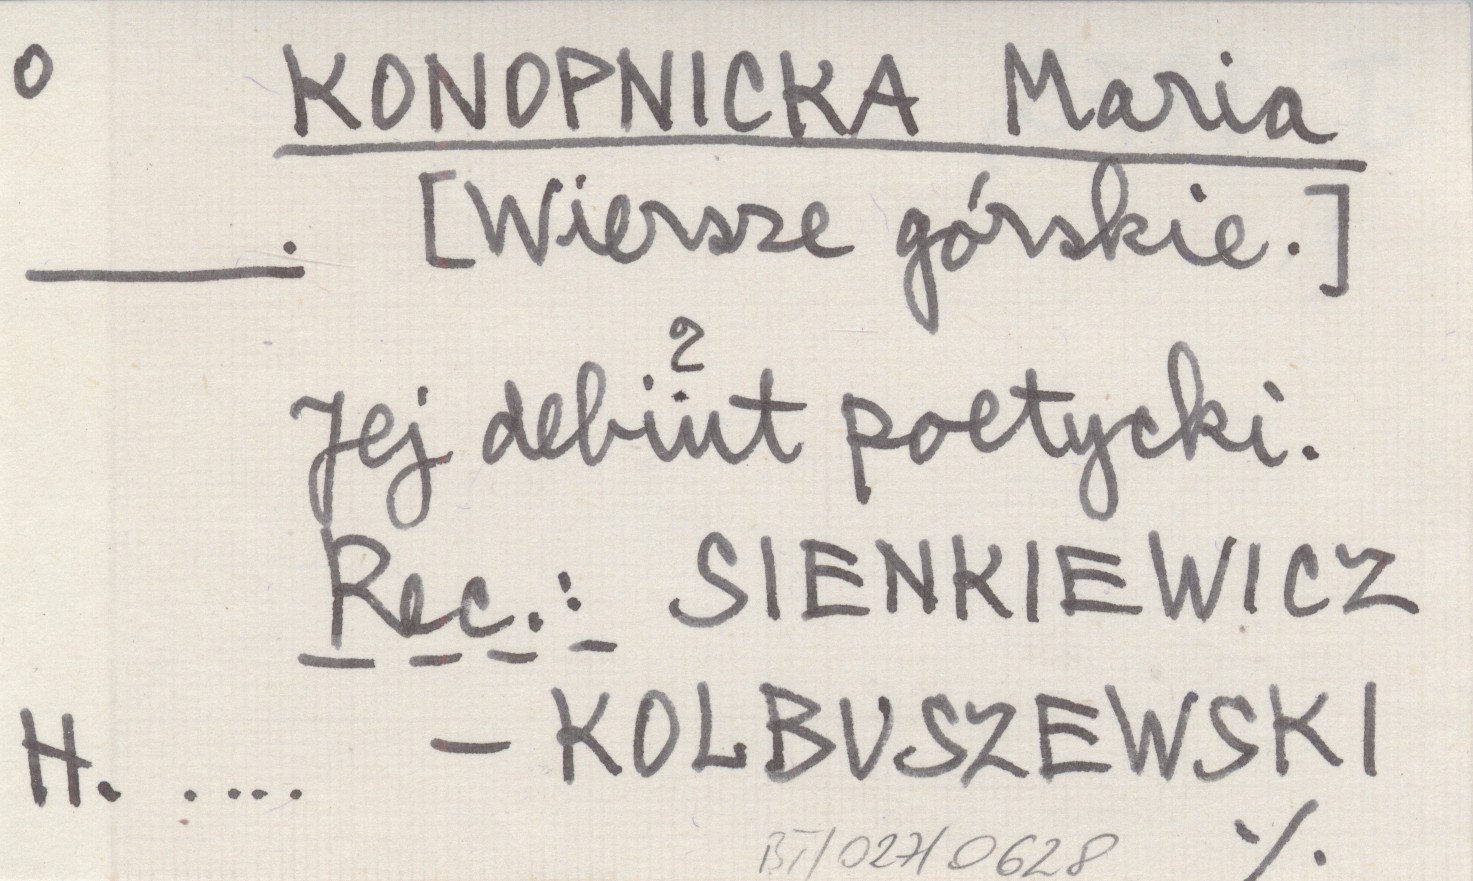 o KONOPNICKA Maria
. [Wiersze górskie.]
?
Jej debiut poetycki.
Rec.: SIENKIEWICZ
H. .... – KOLBUSZEWSKI
BT/027/0628 ·/.